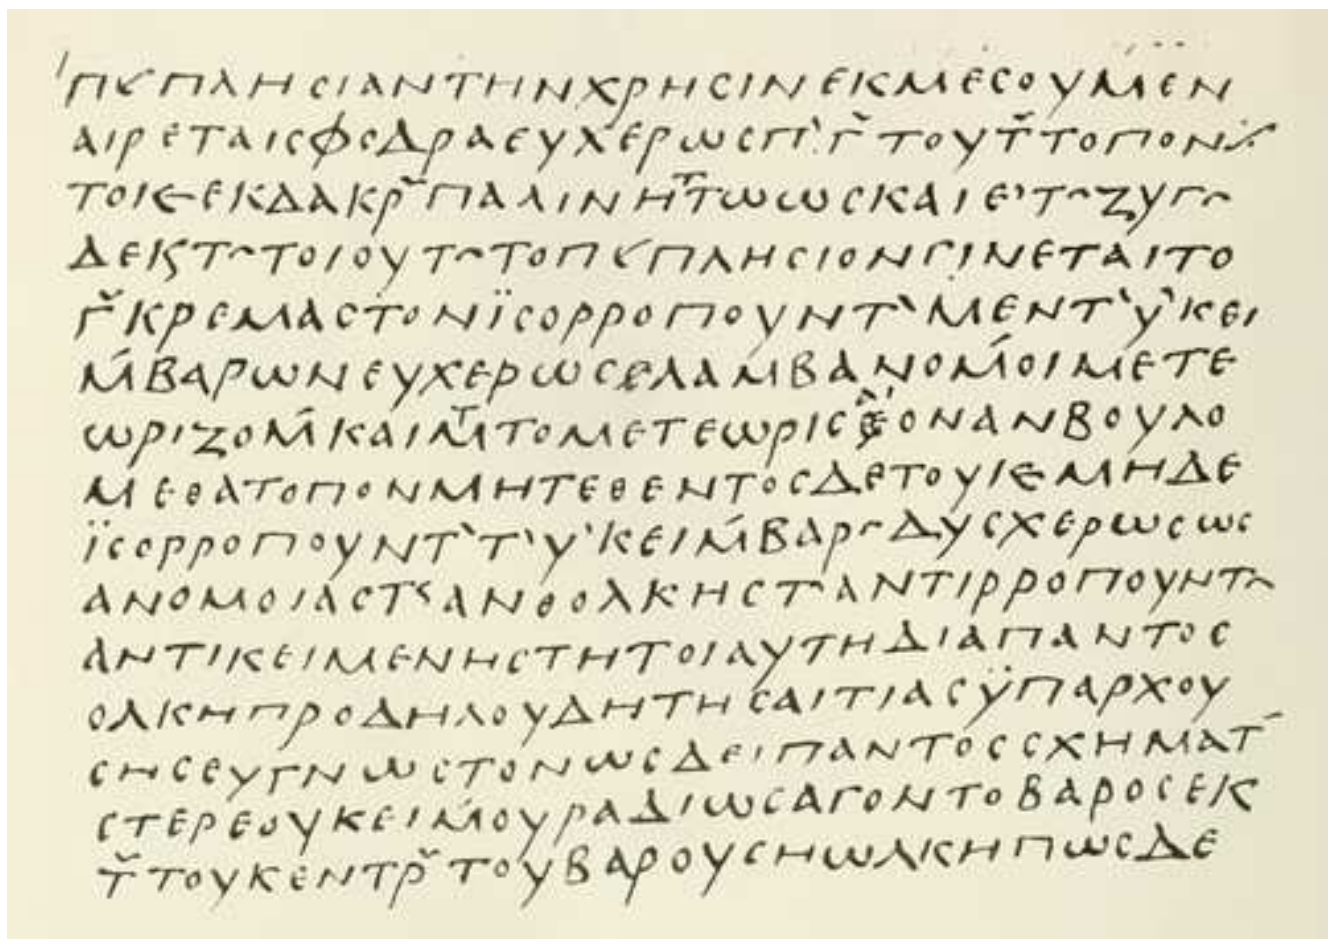 ΠϚΠΛΗϹΙΑΝΤΗΝΧΡΗϹΙΝΕΚΜΕϹΟΥΜΕΝ
ΑΙΡΕΤΑΙϹΦϹΔΡΑΕΥΧΕΡΩϹΠ̀Γ̆ΤΟΥΤ̆ΤΟΠΟΝ
ΤΟΙϾΕΚΔΑΚΡ̆ΠΑΛΙΝΗΤΤΩΩϹΚΑΙΕ'Τ~ΖΥΓ~
ΔΕΚϚΤ~ΤΟΙΟΥΤ~ΤΟΠϚΠΛΗϹΙΟΝΓΙΝΕΤΑΙΤΟ
Γ̆ΚΡΕΜΑϹΤΟΝΪϹΟΡΡΟΠΟΥΝΤ̀ΜΕΝΤ̀ῪΚΕΙ
Μ́ΒΑΡΩΝΕΥΧΕΡΩϹΛΑΜΒΑΝΟΜ́ΟΙΜΕΤΕ
ΩΡΙΖΟΜ́ΚΑΙΜΤΤΟΜΕΤΕΩΡΙϹΟΝΑΝΒΟΥΛΟ
ΜΕΘΑΤΟΠΟΝΜΗΤΕΘΕΝΤΟϹΔΕΤΟΥΙϾΜΗΔΕ
ΪϹΟΡΡΟΠΟΥΝΤ̀Τ̀ῪΚΕΙΜ́ΒΑΡ~ΔΥϹΧΕΡΩϹΩϹ
ΑΝΟΜΟΙΑϹΤϚΑΝΘΟΛΚΗϹΤ~ΑΝΤΙΡΡΟΠΟΥΝΤ~
ΑΝΤΙΚΕΙΜΕΝΗϹΤΗΤΟΙΑΥΤΗΔΙΑΠΑΝΤΟϹ
ΟΛΚΗΠΡΟΔΗΛΟΥΔΗΤΗϹΑΙΤΙΑϹΫΠΑΡΧΟΥ
ϹΗϹΕΥΓΝΩϹΤΟΝΩϹΔΕΙΠΑΝΤΟϹϹΧΗΜΑΤ́
ϹΤΕΡΕΟΥΚΕΙΜ́ΟΥΡΑΔΙΩϹΑΓΟΝΤΟΒΑΡΟϹΕΚ
Τ̆ΤΟΥΚΕΝΤΡ̆ΤΟΥΒΑΡΟΥϹΗΩΛΚΗΠΩϹΔΕ